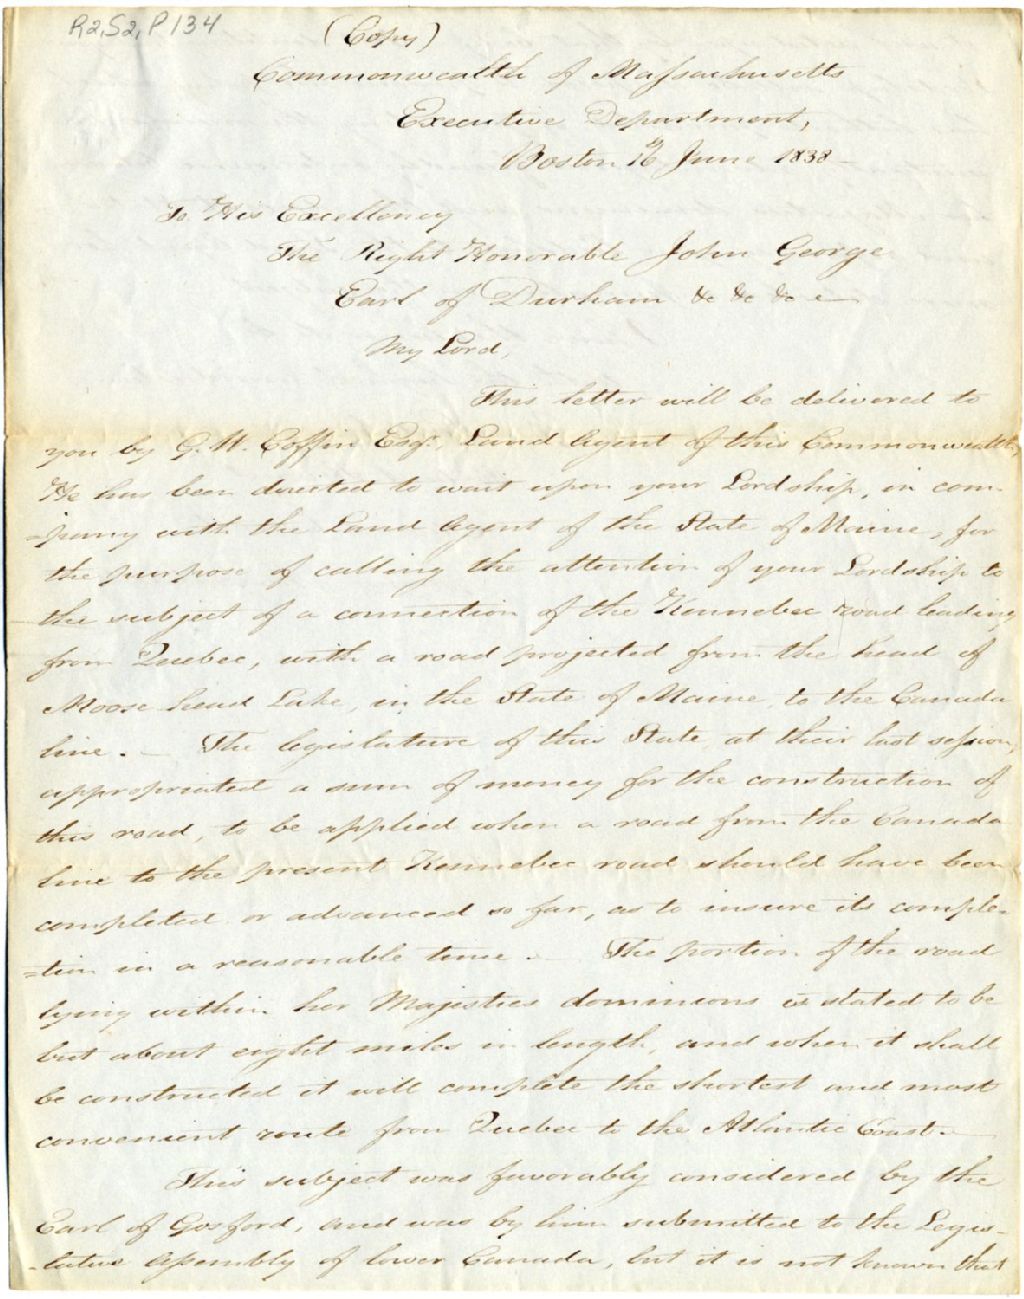 R2, S2, P134
(Copy)
Commonwealth of Massachusetts
Executive Department,
Boston 16th June 1838
To His Excellency
The Right Honorable John George
Earl of Durham &c &c &c
My Lord,
This letter will be delivered to
you by G. W. Coffin Esqr. Land Agent of this Commonwealth,
He has been directed to wait upon your Lordship, in com-
-pany with the Land Agent of the State of Maine, for
the purpose of calling the attention of your Lordship to
the subject of a connection of the Kennebec road leading
from Quebec, with a road projected from the head of
Moose head Lake, in the State of Maine, to the Canada
line. — The legislature of this State, at their last session,
appropriated a sum of money for the construction of
this road, to be applied when a road from the Canada
line to the present Kennebec road should have been
completed or advanced so far, as to insure its comple-
-tion in a reasonable time. — The portion of the road
lying within her Majesties dominions is stated to be
but about eight miles in length, and when it shall
be constructed it will complete the shortest and most
convenient route from Quebec to the Atlantic Coast. —
This subject was favorably considered by the
Earl of Gosford, and was by him submitted to the Legis-
-lative Assembly of lower Canada, but it is not known that